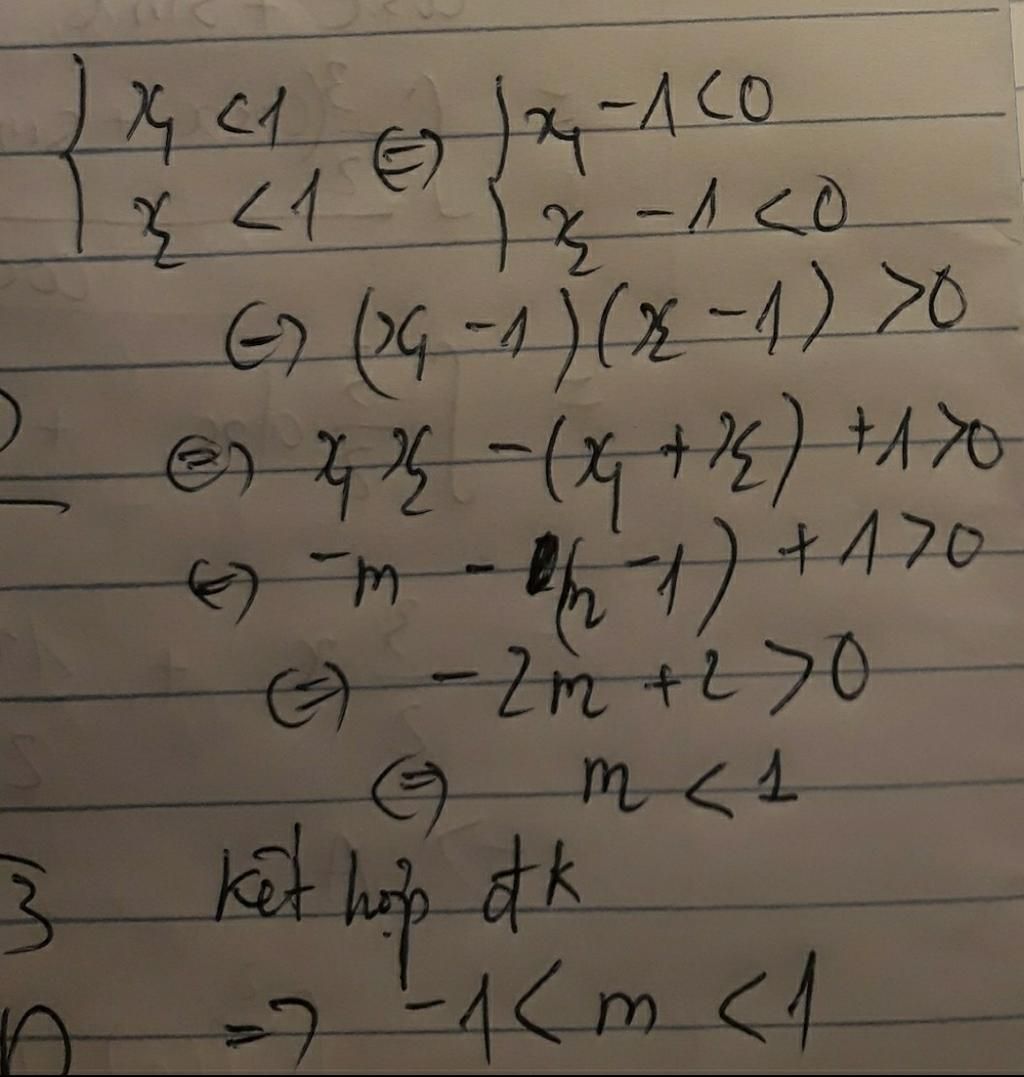 { x₁ < 1 ⇔ { x₁ - 1 < 0
{ x₂ < 1 { x₂ - 1 < 0
⇔ (x₁ - 1)(x₂ - 1) > 0
⇔ x₁x₂ - (x₁ + x₂) + 1 > 0
⇔ -m - (m - 1) + 1 > 0
⇔ -2m + 2 > 0
⇔ m < 1
3 kết hợp đk
=> -1 < m < 1